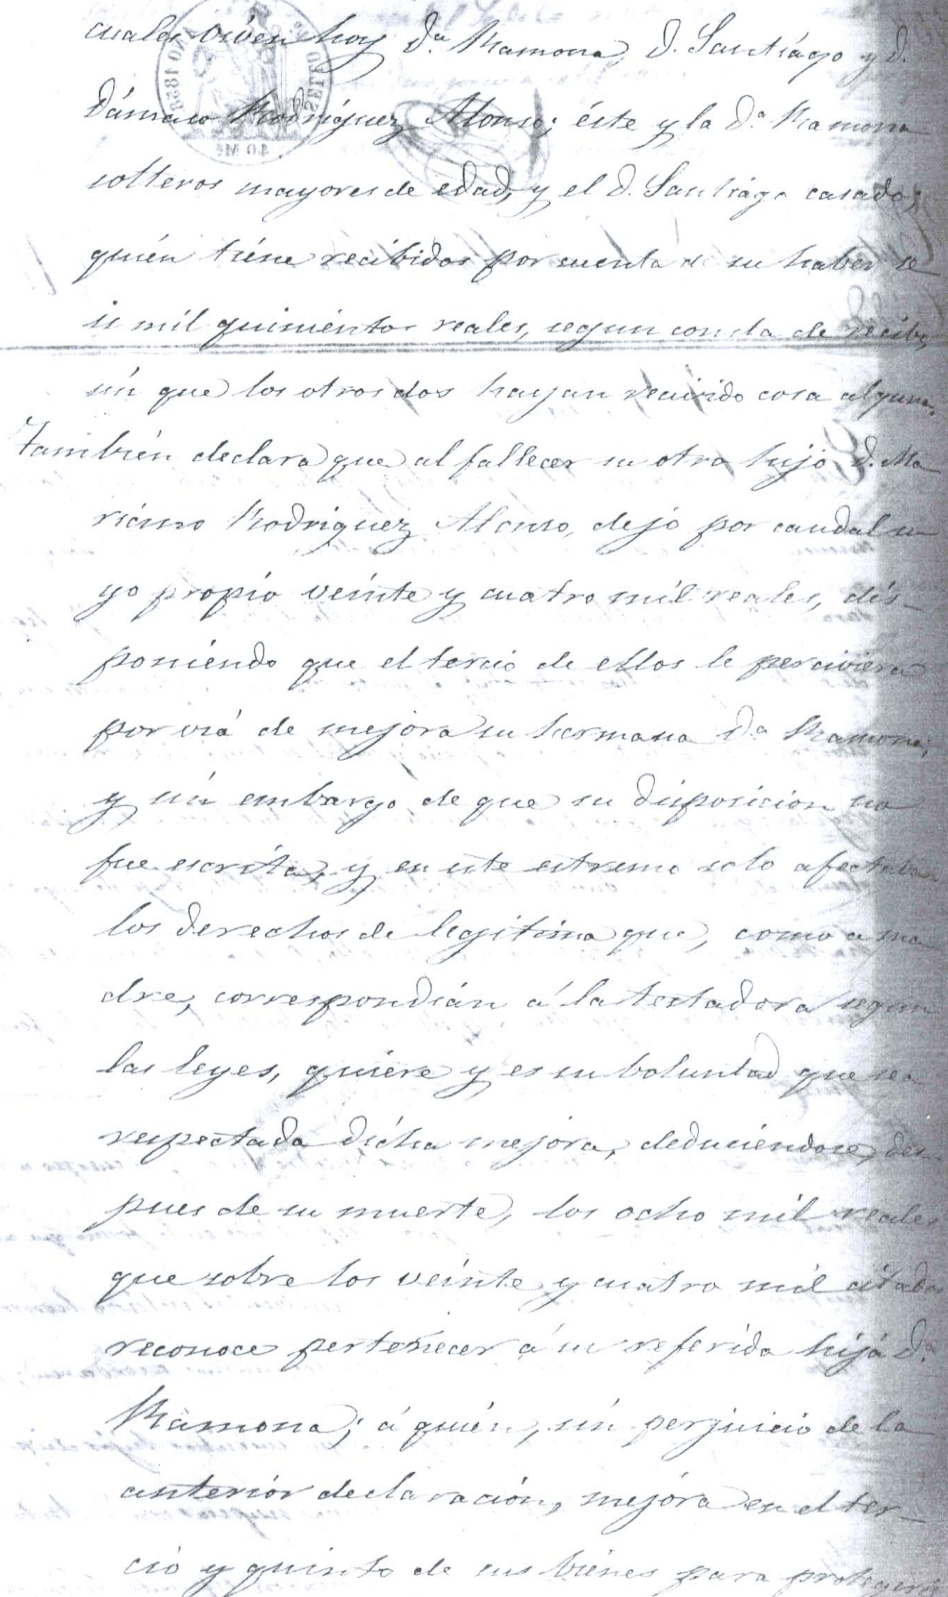 cuales viven hoy D.ª Ramona, D. Santiágo y D.
Dámaso Rodríguez Alonso; éste y la D.ª Ramona
solteros mayores de edad, y el D. Santiágo casado;
quién tiéne recibidos por cuenta de su haber se
is mil quiniéntos reales, segun consta de recibo,
sin que los otros dos hayan recivido cosa alguna.
También declara que al fallecer su otro hijo D. Ma
riano Rodriguez Alonso, dejó por caudal su
yo propio veínte y cuatro mil reales, dis-
poniéndo que el tercio de ellos le perciviera
por viá de mejora su hermana D.ª Ramona;
y sin embargo de que su disposicion no
fue escrita, y en este estremo solo afectaban
los derechos de legitima que, como a ma
dre, correspondián á la testadora segun
las leyes, quiére y es su boluntad que sea
respectada dicha mejora, deduciéndose, des-
pues de su muerte, los ocho mil reales
que sobre los veínte y cuatro mil citados
reconoce pertenecer á su referida hijá D.ª
Ramona; á quién, sin perjuicio de la
anteriór declaración, mejóra en el ter-
ció y quinto de sus biénes para